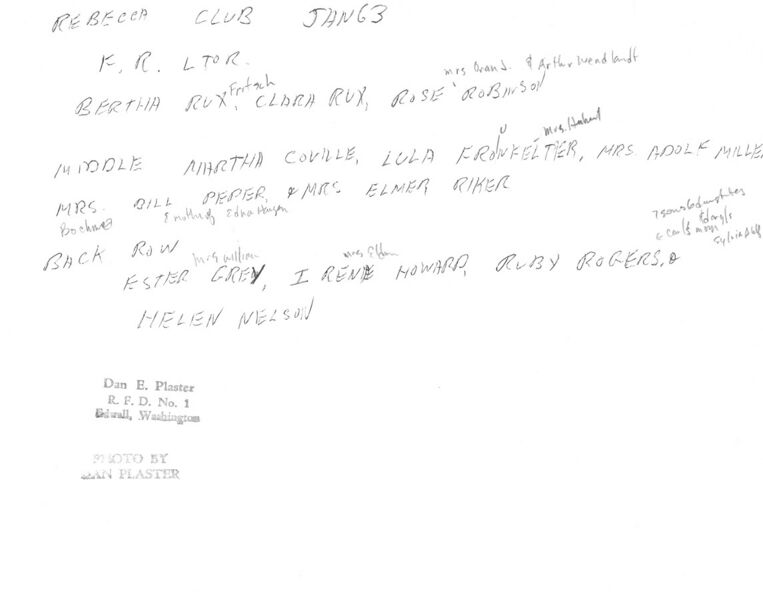 REBECCA CLUB JAN63
F. R. L TO R.
mrs Oran J. & Arthur Wendlandt
Fritsch
BERTHA RUX, CLARA RUX, ROSE ROBINSON
U mrs. Hubert
MIDDLE MARTHA COVILLE, LULA FRONFELTIER, MRS. ADOLF MILLE
MRS. BILL PEPER, & MRS ELMER RIKER
mother of Edna Hansen
7 sons 6 daughters
BACK ROW
mrs william mrs
ESTER GREY, IRENE HOWARD, RUBY ROGERS, &
HELEN NELSON
Dan E. Plaster
R. F. D. No. 1
Edwall, Washington
PHOTO BY
DAN PLASTER